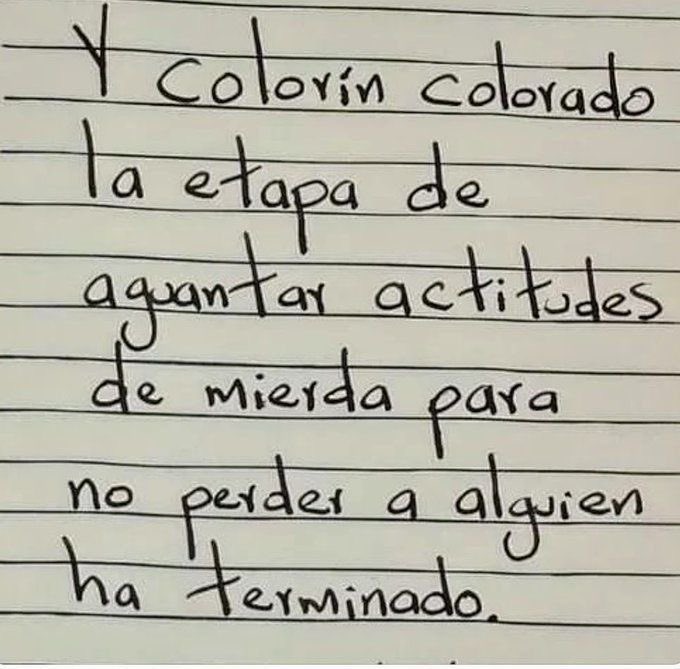 Y colorín colorado
la etapa de
aguantar actitudes
de mierda para
no perder a alguien
ha terminado.